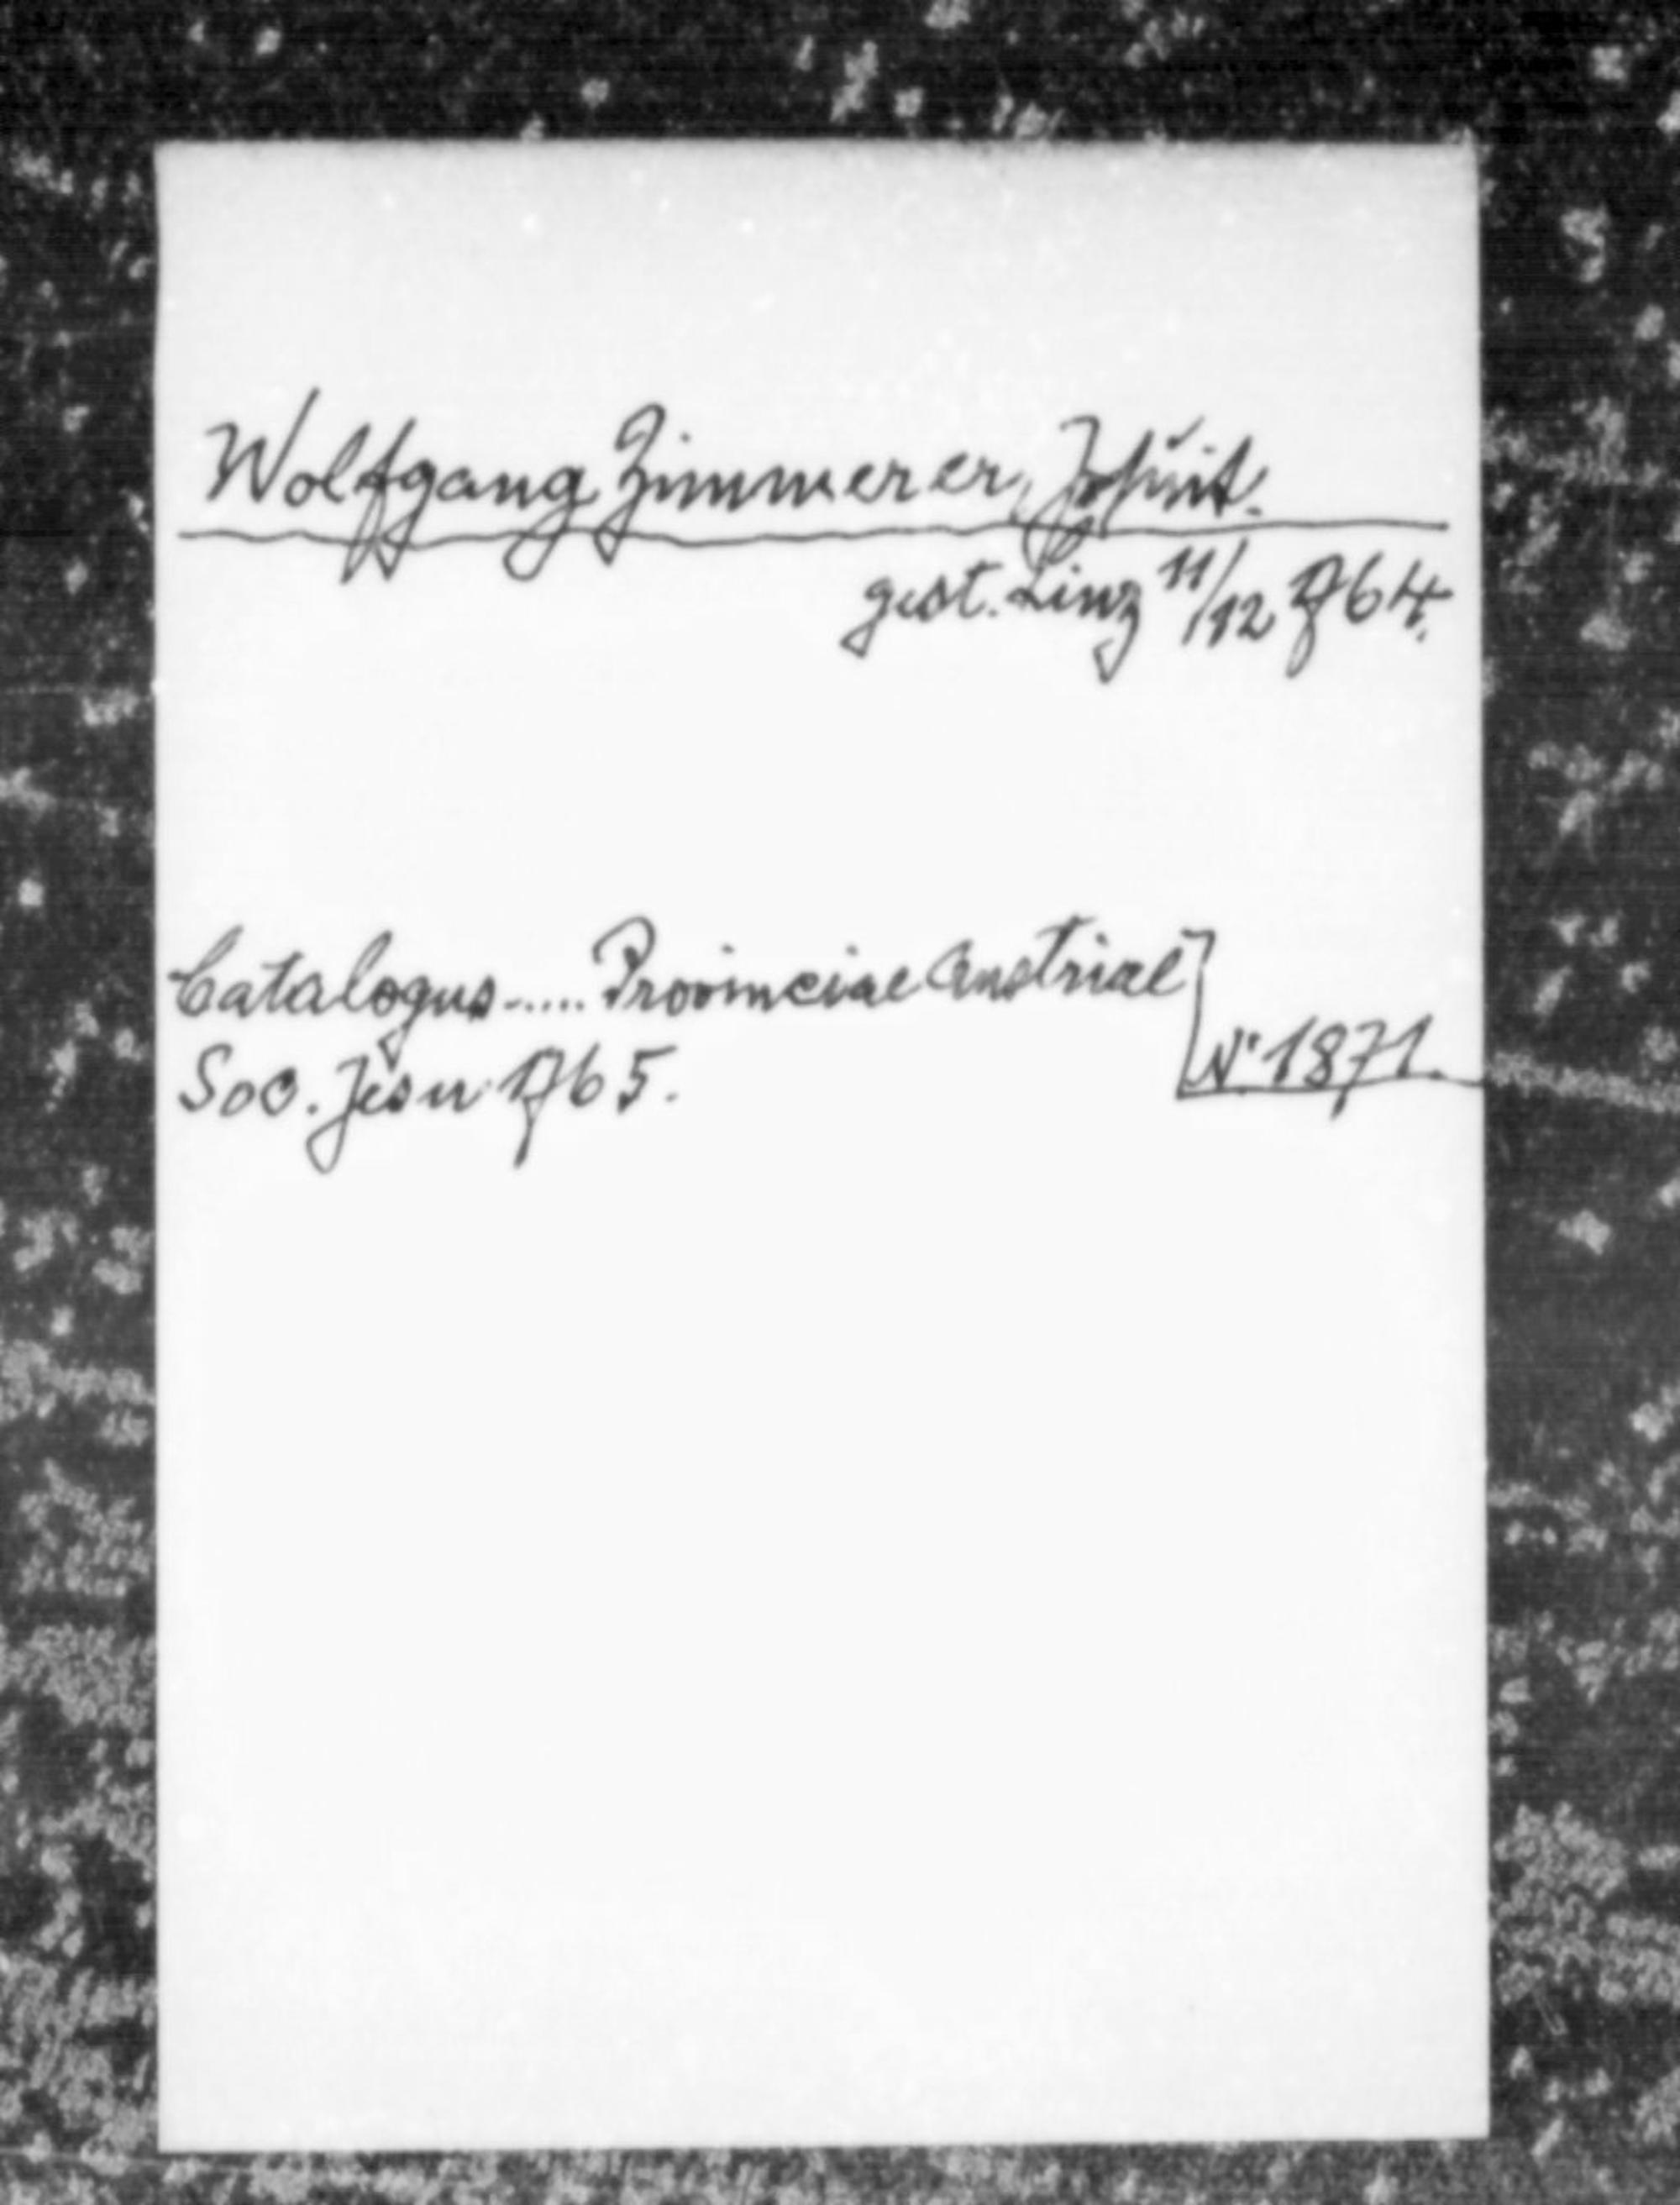 Wolfgang Zimmerer, Jesuit.
gest. Linz 11/12 764.
Catalogus..... Provinciae Austriae
Soc. Jesu 1765.
N° 1871.